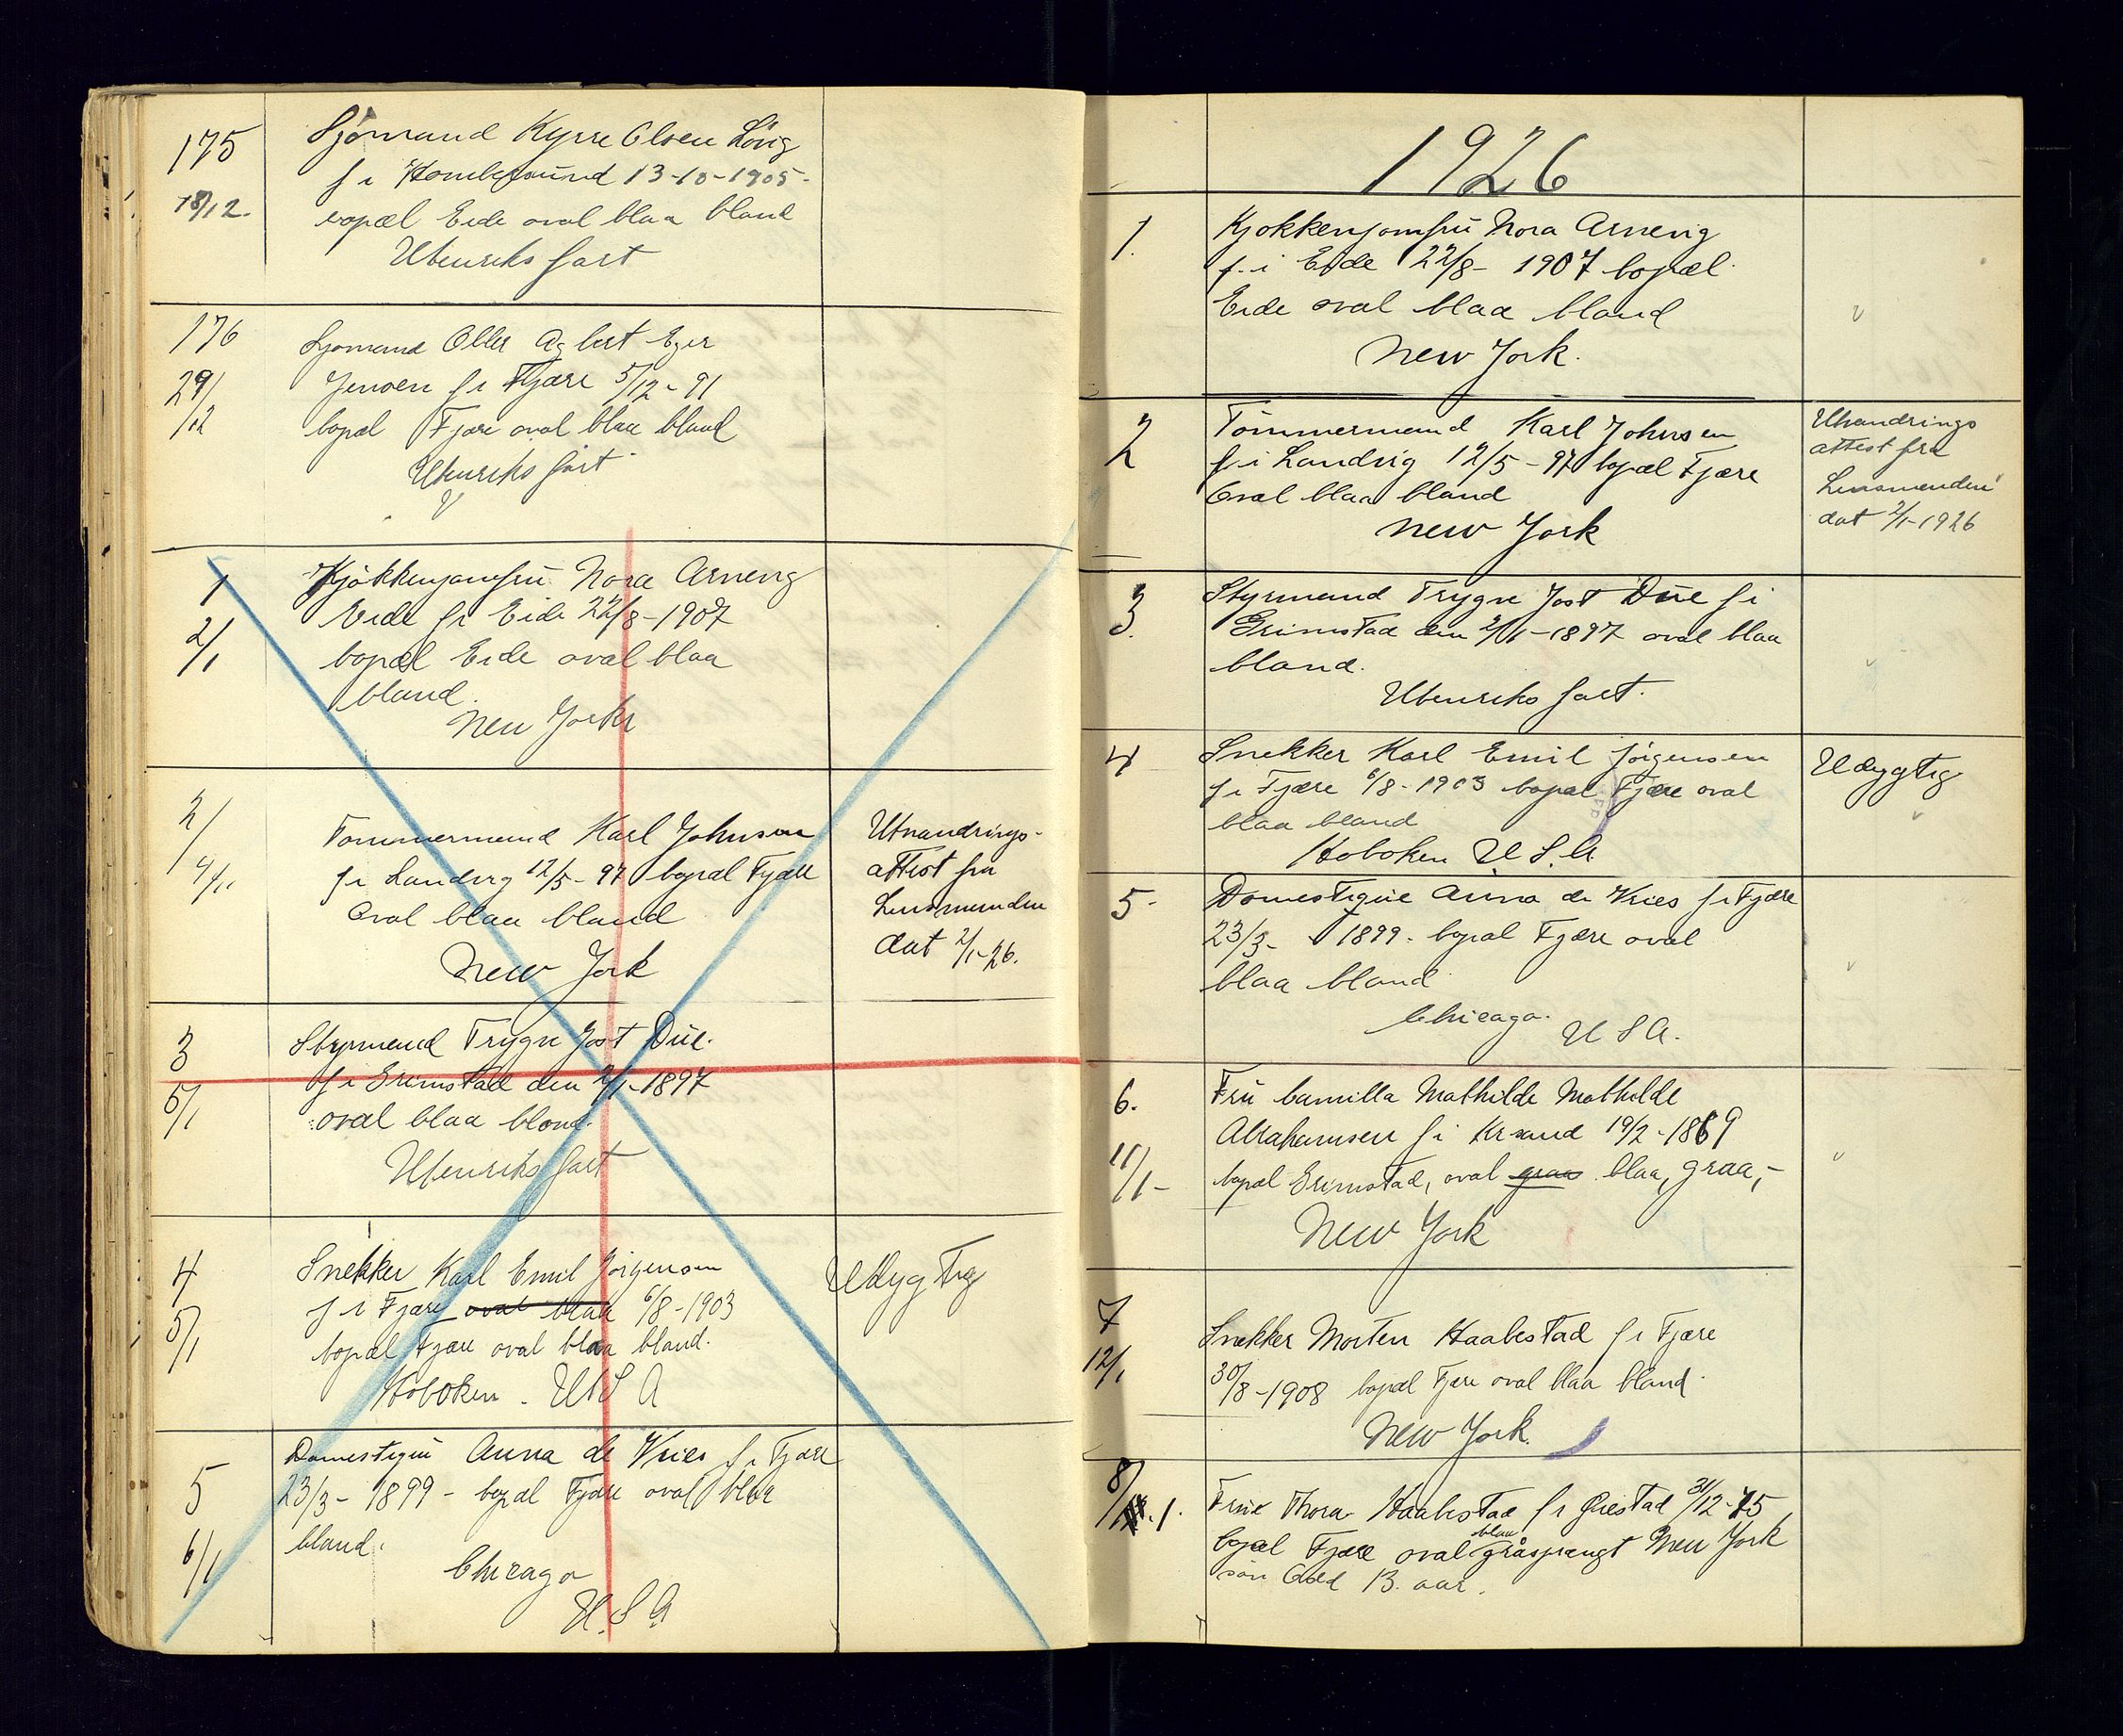 175
18/12.
Sjömand Kyrre Olsen Lövig
f i Hombesund 13-10-1905-
bopæl Eide oval blaa bland
Utenriks fart
176
29/12
Sjömand Oller Agbert Ejer
Jensen f i Fjære 5/12-91
bopæl Fjære oval blaa bland
Utenriks fart
1
2/1
Kjökkenjomfru Nora Arnevig
Eide f i Eide 22/8-1907
bopæl Eide oval blaa
bland.
New York
2/
4/1
Tömmermand Karl Johnsen
f i Landvig 12/5-97 bopæl Fjære
Oval blaa bland
New York
Utvandrings-
attest fra
Lensmanden
dat 2/1-26.
3
5/1
Styrmand Trygve Jost Due.
f i Grimstad den 2/1-1897
oval blaa bland.
Utenriks fart
4
5/1
Snekker Karl Emil Jörgensen
f i Fjære oval blaa 6/8-1903
bopæl Fjære oval blaa bland.
Hoboken. U S A
Udygtig
5
6/1
Domestique Anna de Vries f i Fjære
23/3-1899- bopæl Fjære oval blaa
bland.
Chicago
U.S A
1926
1.
Kjökkenjomfru Nora Arnevig
f. i Eide 22/8-1907 bopæl.
Eide oval blaa bland
New York.
2
Tömmermand Karl Johnsen
f i Landvig 12/5-97 bopæl Fjære
Oval blaa bland
New York
Utvandrings
attest fra
Lensmanden
dat 2/1-1926
3.
Styrmand Trygve Jost Due f i
Grimstad den 2/1-1897 oval blaa
bland.
Utenriks fart.
4
Snekker Karl Emil Jörgensen
f i Fjære 6/8-1903 bopæl Fjære oval
blaa bland
Hoboken U S. A
Udygtig
5-
Domestique Anna de Vries f i Fjære
23/3- 1899. bopæl Fjære oval
blaa bland
Chicago.
U S A.
6.
11/1-
Fru Camilla Mathilde Mathilde
Abrahamsen f i Krsand 19/2-1869
bopæl Grimstad, oval graa blaa, graa,-
New York
7
12/1
Snekker Morten Haabestad f i Fjære
30/8-1908 bopæl Fjære oval blaa bland.
New York.
8/
.1.
Frue Thora Haabestad f i Öiestad 31/12-75
bopæl Fjære oval blaa gråsprengt New York
sön Odd 13. aar.